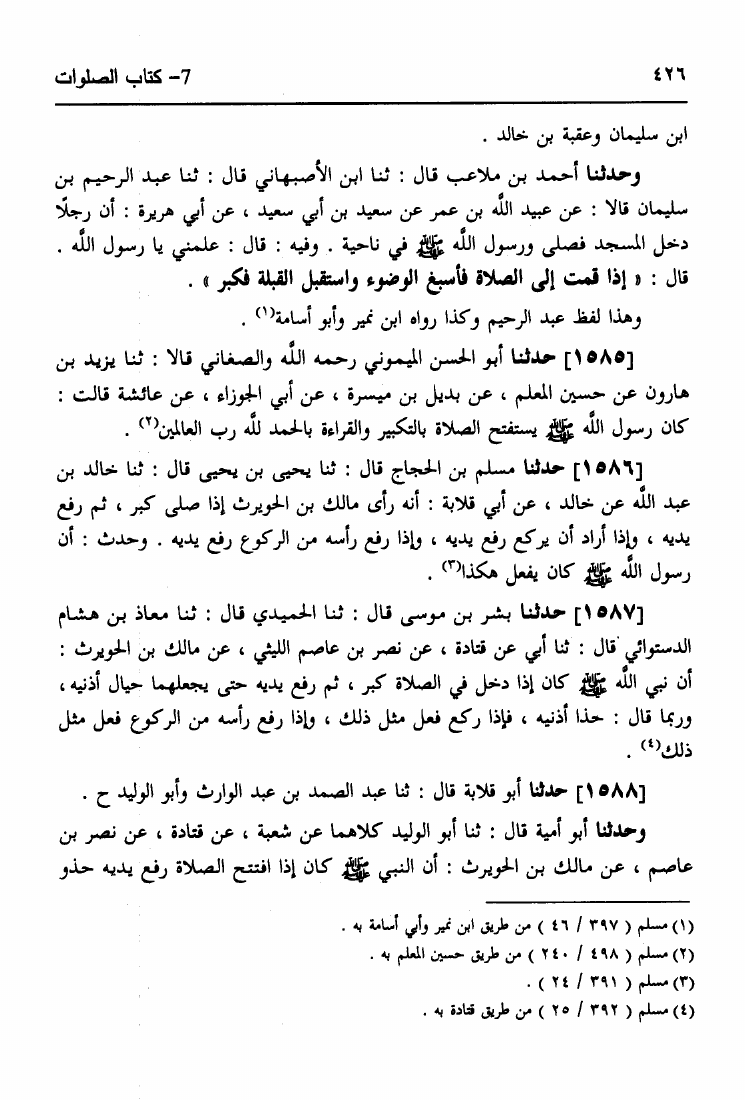 ٤٢٦
7- كتاب الصلوات
ابن سليمان وعقبة بن خالد .
وحدثنا أحمد بن ملاعب قال : ثنا ابن الأصبهاني قال : ثنا عبد الرحيم بن
سليمان قالا : عن عبيد الله بن عمر عن سعيد بن أبي سعيد ، عن أبي هريرة : أن رجلًا
دخل المسجد فصلى ورسول الله ﷺ في ناحية . وفيه : قال : علمني يا رسول الله .
قال : « إذا قمت إلى الصلاة فأسبغ الوضوء واستقبل القبلة فكبر » .
وهذا لفظ عبد الرحيم وكذا رواه ابن نمير وأبو أسامة(١) .
[١٥٨٥] حدثنا أبو الحسن الميموني رحمه الله والصغاني قالا : ثنا يزيد بن
هارون عن حسين المعلم ، عن بديل بن ميسرة ، عن أبي الجوزاء ، عن عائشة قالت :
كان رسول الله ﷺ يستفتح الصلاة بالتكبير والقراءة بالحمد لله رب العالمين(٢) .
[١٥٨٦] حدثنا مسلم بن الحجاج قال : ثنا يحيى بن يحيى قال : ثنا خالد بن
عبد الله عن خالد ، عن أبي قلابة : أنه رأى مالك بن الحويرث إذا صلى كبر ، ثم رفع
يديه ، وإذا أراد أن يركع رفع يديه ، وإذا رفع رأسه من الركوع رفع يديه . وحدث : أن
رسول الله ﷺ كان يفعل هكذا(٣) .
[١٥٨٧] حدثنا بشر بن موسى قال : ثنا الحميدي قال : ثنا معاذ بن هشام
الدستوائي قال : ثنا أبي عن قتادة ، عن نصر بن عاصم الليثي ، عن مالك بن الحويرث :
أن نبي الله ﷺ كان إذا دخل في الصلاة كبر ، ثم رفع يديه حتى يجعلهما حيال أذنيه ،
وربما قال : حذا أذنيه ، فإذا ركع فعل مثل ذلك ، وإذا رفع رأسه من الركوع فعل مثل
ذلك(٤) .
[١٥٨٨] حدثنا أبو قلابة قال : ثنا عبد الصمد بن عبد الوارث وأبو الوليد ح .
وحدثنا أبو أمية قال : ثنا أبو الوليد كلاهما عن شعبة ، عن قتادة ، عن نصر بن
عاصم ، عن مالك بن الحويرث : أن النبي ﷺ كان إذا افتتح الصلاة رفع يديه حذو
(١) مسلم ( ٣٩٧ / ٤٦ ) من طريق ابن نمير وأبي أسامة به .
(٢) مسلم ( ٤٩٨ / ٢٤٠ ) من طريق حسين المعلم به .
(٣) مسلم ( ٣٩١ / ٢٤ ) .
(٤) مسلم ( ٣٩٢ / ٢٥ ) من طريق قتادة به .